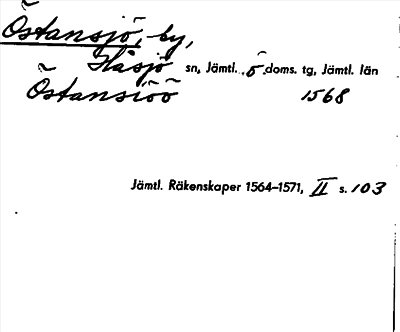 Östansjö, by,
Håsjö sn, Jämtl. ö doms. tg, Jämtl. län
Östansiöö 1568
Jämtl. Räkenskaper 1564–1571, II s. 103